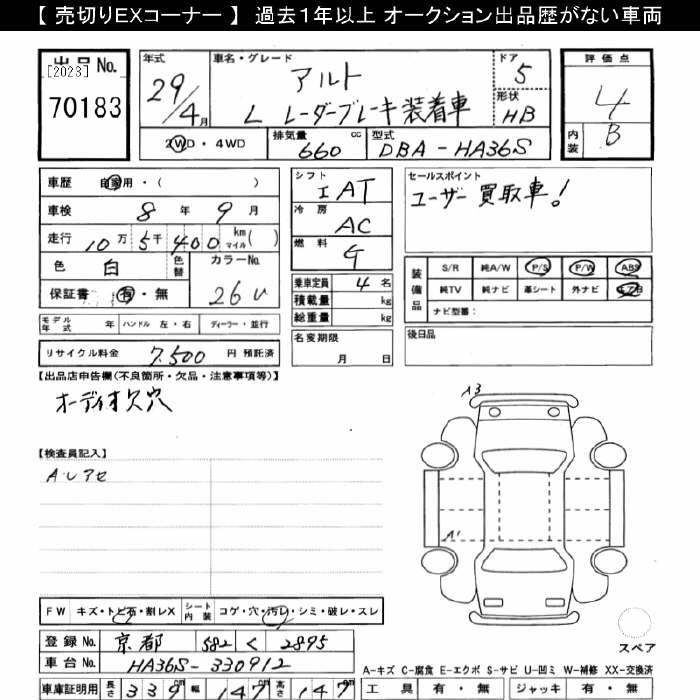 【 売切りEXコーナー 】 過去1年以上 オークション出品歴がない車両
出品 No.
[2023]
70183
年式
29/4月
車名・グレード
アルト
L レーダーブレーキ装着車
ドア
5
形状
HB
評価点
4
内装
B
2WD・4WD
排気量 660 cc
型式 DBA-HA36S
車歴 自家用・( )
車検 8年 9月
走行 10万 5千 400 km マイル( )
色 白 色替 カラーNo. 26U
保証書 有・無
モデル年式 年 ハンドル 左・右 ディーラー・並行
リサイクル料金 7,500 円 預託済
シフト IAT
冷房 AC
燃料 G
乗車定員 4 名
積載量 kg
総重量 kg
名変期限
月 日
セールスポイント
ユーザー買取車!
装備品
S/R 純A/W P/S P/W ABS
純TV 純ナビ 革シート 外ナビ
ナビ型番:
後日品
【出品店申告欄(不良箇所・欠品・注意事項等)】
オーディオ欠穴
【検査員記入】
A・レアセ
A3
A1
FW キズ・トビ石・割レX シート内装 コゲ・穴・汚レ・シミ・破レ・スレ
登録 No. 京都 582 く 2895
車台 No. HA36S-330912
車庫証明用 長さ 339cm 幅 147cm 高さ 147
スペア
A-キズ C-腐食 E-エクボ S-サビ U-凹ミ W-補修 XX-交換済
工具 有・無 ジャッキ 有・無